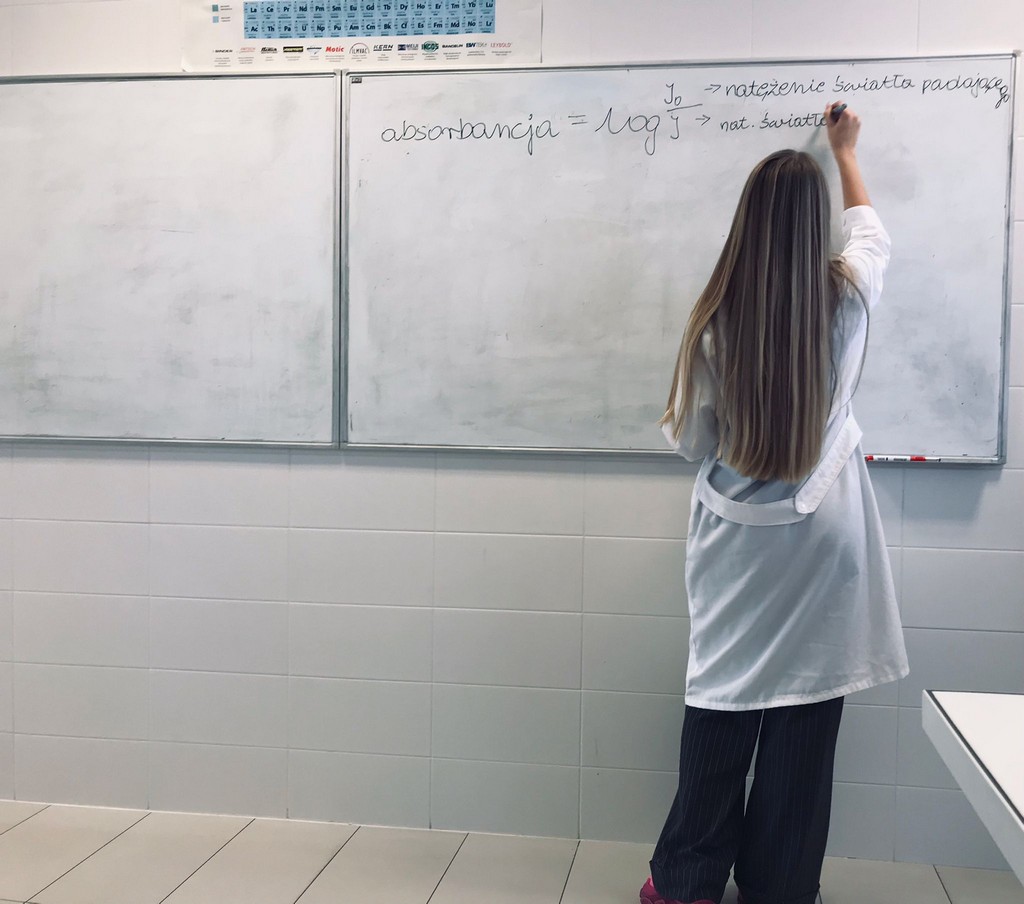 La Ce Pr Nd Pm Sm Eu Gd Tb Dy Ho Er Tm Yb Lu
Ac Th Pa U Np Pu Am Cm Bk Cf Es Fm Md No Lr
Motic KERN INCOS LEYBOLD
J₀ → natężenie światła padającego
absorbancja = log
J → nat. światła